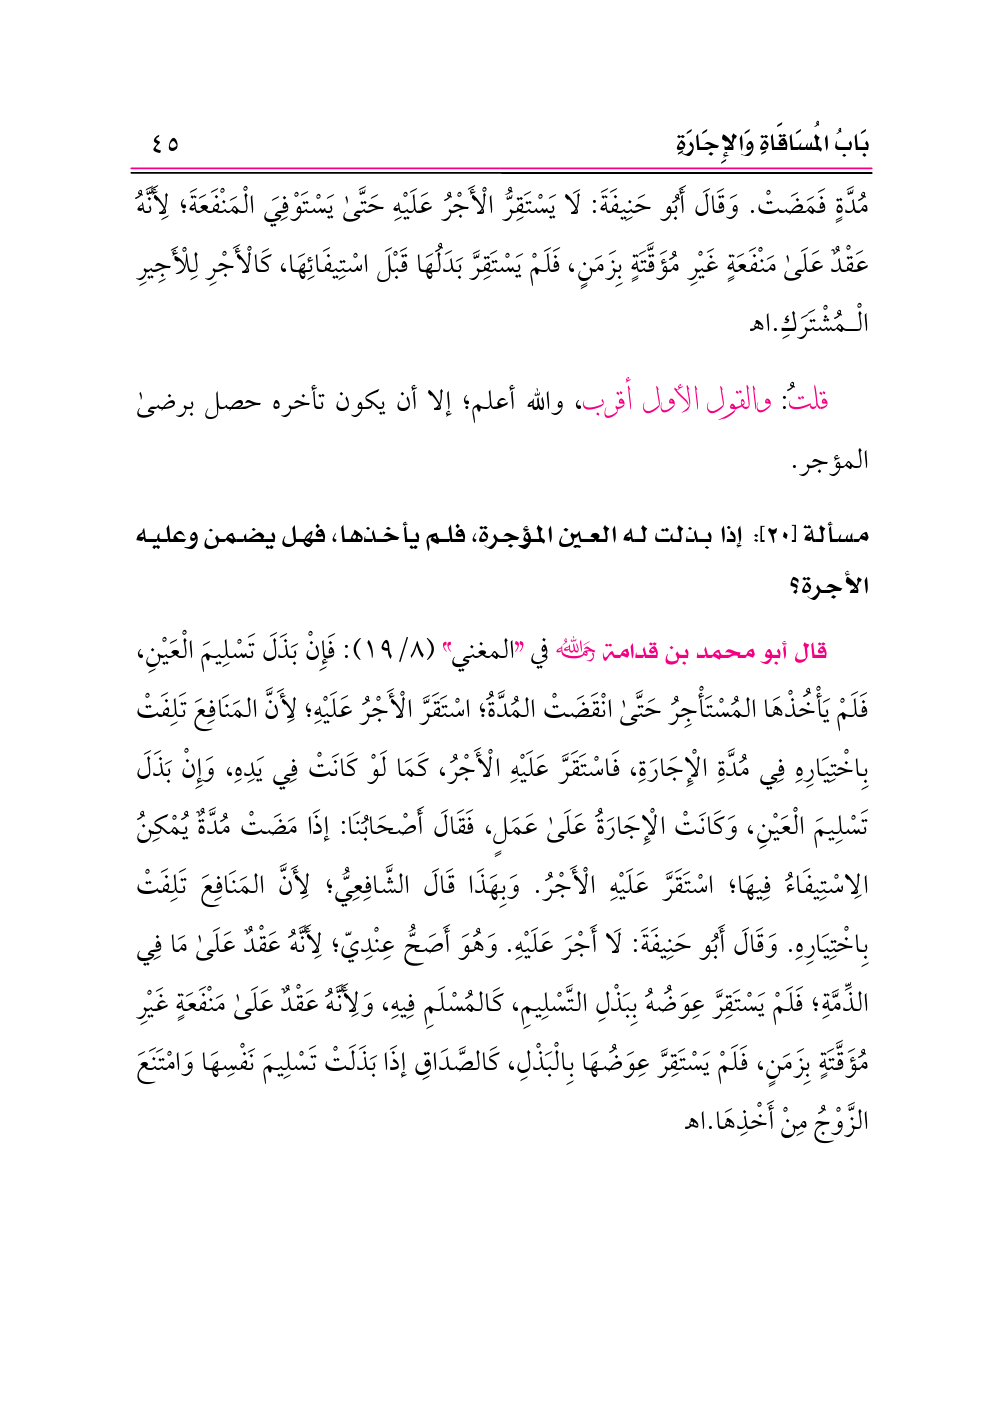 بَابُ المُسَاقَاةِ وَالإِجَارَةِ ٤٥
مُدَّةٍ فَمَضَتْ. وَقَالَ أَبُو حَنِيفَةَ: لَا يَسْتَقِرُّ الْأَجْرُ عَلَيْهِ حَتَّىٰ يَسْتَوْفِيَ الْمَنْفَعَةَ؛ لِأَنَّهُ
عَقْدٌ عَلَىٰ مَنْفَعَةٍ غَيْرِ مُؤَقَّتَةٍ بِزَمَنٍ، فَلَمْ يَسْتَقِرَّ بَدَلُهَا قَبْلَ اسْتِيفَائِهَا، كَالْأَجْرِ لِلْأَجِيرِ
الْـمُشْتَرَكِ.اهـ
قلتُ: والقول الأول أقرب، والله أعلم؛ إلا أن يكون تأخره حصل برضىٰ
المؤجر.
مسألة [٢٠]: إذا بذلت له العين المؤجرة، فلم يأخذها، فهل يضمن وعليه
الأجرة؟
قال أبو محمد بن قدامة رحمه الله في "المغني" (٨/ ١٩): فَإِنْ بَذَلَ تَسْلِيمَ الْعَيْنِ،
فَلَمْ يَأْخُذْهَا المُسْتَأْجِرُ حَتَّىٰ انْقَضَتْ المُدَّةُ؛ اسْتَقَرَّ الْأَجْرُ عَلَيْهِ؛ لِأَنَّ المَنَافِعَ تَلِفَتْ
بِاخْتِيَارِهِ فِي مُدَّةِ الْإِجَارَةِ، فَاسْتَقَرَّ عَلَيْهِ الْأَجْرُ، كَمَا لَوْ كَانَتْ فِي يَدِهِ، وَإِنْ بَذَلَ
تَسْلِيمَ الْعَيْنِ، وَكَانَتْ الْإِجَارَةُ عَلَىٰ عَمَلٍ، فَقَالَ أَصْحَابُنَا: إِذَا مَضَتْ مُدَّةٌ يُمْكِنُ
الِاسْتِيفَاءُ فِيهَا؛ اسْتَقَرَّ عَلَيْهِ الْأَجْرُ. وَبِهَذَا قَالَ الشَّافِعِيُّ؛ لِأَنَّ المَنَافِعَ تَلِفَتْ
بِاخْتِيَارِهِ. وَقَالَ أَبُو حَنِيفَةَ: لَا أَجْرَ عَلَيْهِ. وَهُوَ أَصَحُّ عِنْدِيّ؛ لِأَنَّهُ عَقْدٌ عَلَىٰ مَا فِي
الذِّمَّةِ؛ فَلَمْ يَسْتَقِرَّ عِوَضُهُ بِبَذْلِ التَّسْلِيمِ، كَالمُسْلَمِ فِيهِ، وَلِأَنَّهُ عَقْدٌ عَلَىٰ مَنْفَعَةٍ غَيْرِ
مُؤَقَّتَةٍ بِزَمَنٍ، فَلَمْ يَسْتَقِرَّ عِوَضُهَا بِالْبَذْلِ، كَالصَّدَاقِ إِذَا بَذَلَتْ تَسْلِيمَ نَفْسِهَا وَامْتَنَعَ
الزَّوْجُ مِنْ أَخْذِهَا.اهـ